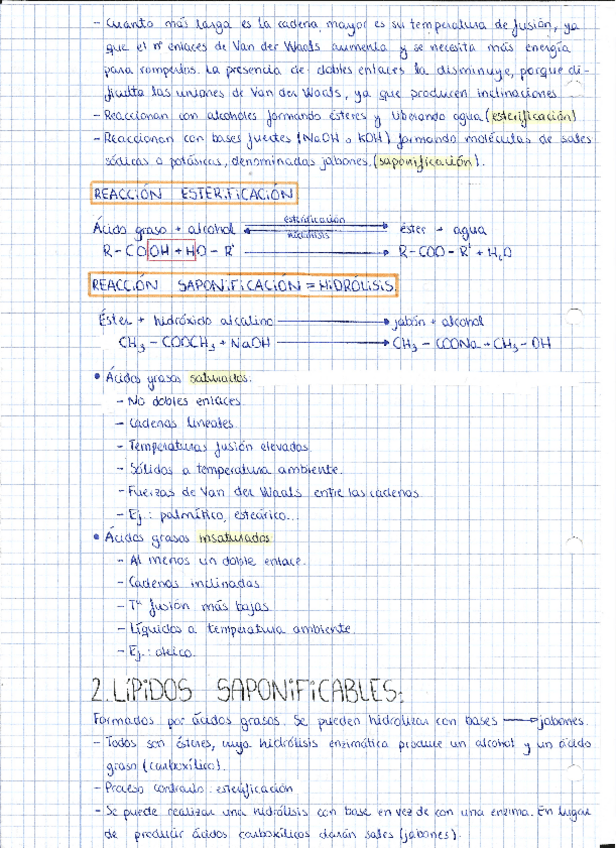 - Cuanto más larga es la cadena, mayor es su temperatura de fusión, ya
que el nº enlaces de Van der Waals aumenta y se necesita más energía
para romperlos. La presencia de dobles enlaces la disminuye, porque di-
ficulta las uniones de Van der Waals, ya que producen inclinaciones
- Reaccionan con alcoholes formando ésteres y liberando agua (esterificación)
- Reaccionan con bases fuertes (NaOH o KOH) formando moléculas de sales
sódicas o potásicas, denominadas jabones. (saponificación).
REACCIÓN ESTERIFICACIÓN
Ácido graso + alcohol esterificación hidrólisis éster + agua
R-COOH + HO-R' → R-COO-R' + H2O
REACCIÓN SAPONIFICACIÓN = HIDRÓLISIS
Éster + hidróxido alcalino → jabón + alcohol
CH3 - COOCH3 + NaOH → CH3 - COONa + CH3 - OH
• Ácidos grasos saturados:
- No dobles enlaces.
- Cadenas lineales.
- Temperaturas fusión elevadas.
- Sólidos a temperatura ambiente.
- Fuerzas de Van der Waals entre las cadenas
- Ej.: palmítico, esteárico...
• Ácidos grasos insaturados
- Al menos un doble enlace.
- Cadenas inclinadas
- Tª fusión más bajas
- Líquidos a temperatura ambiente.
- Ej.: oleico.
2. LÍPIDOS SAPONIFICABLES:
Formados por ácidos grasos. Se pueden hidrolizar con bases → jabones.
- Todos son ésteres, cuya hidrólisis enzimática produce un alcohol y un ácido
graso (carboxílico).
- Proceso contrario: esterificación
- Se puede realizar una hidrólisis con base en vez de con una enzima. En lugar
de producir ácidos carboxílicos darán sales (jabones).